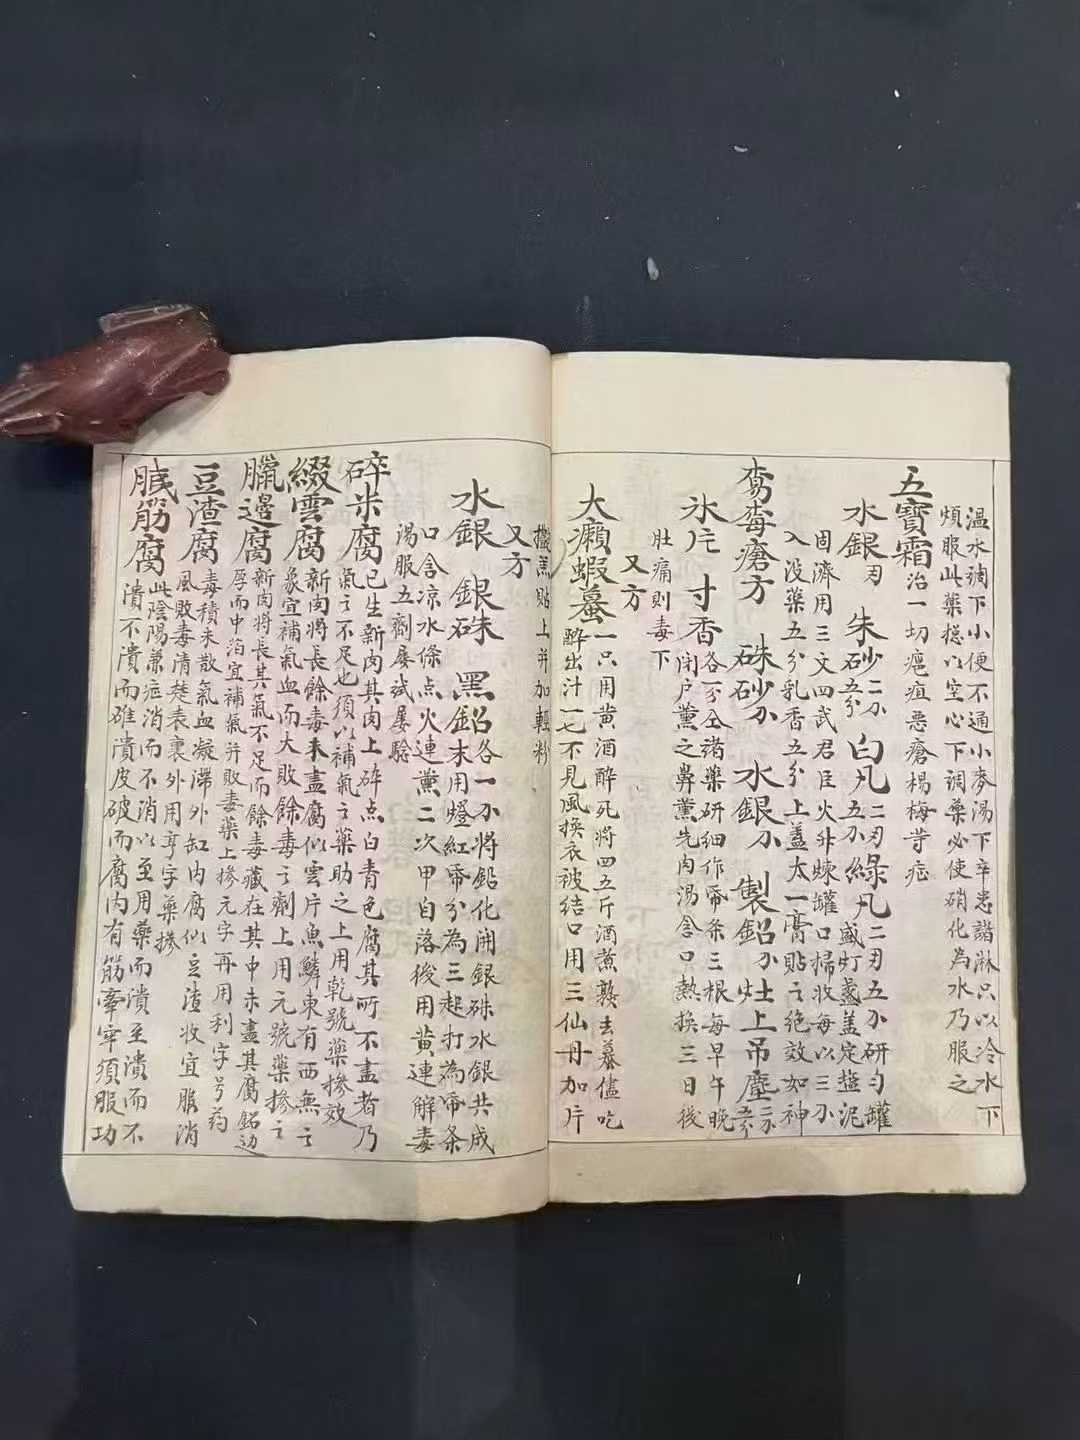 温水調下小便不通小麥湯下辛患諸淋只以冷水下
煩服此藥搃以空心下調藥必使硝化為水乃服之
五寶霜治一切瘪疽惡瘡楊梅等症
水銀 朱砂二分五分 白凡二刃五分 綠凡二刃五分研勻罐
固濟用三文四武君臣火升煉罐口掃收每以三分
入没藥五分乳香五分上蓋太一膏貼之絕效如神
毒瘡方 硃砂 水銀 製鉛 灶上吊塵
氷片 寸香各一分仝諸藥研細作帋条三根每早午晚
閉户薰之鼻薰先内湯含口熱換三日後
肚痛則毒下
又方
大癩蝦蟇一只用黄酒醉死將四五斤酒煮熟去蟇儘吃
醉出汁一七不見風換衣被结口用三仙丹加片
攤羔貼上并加輕粉
又方
水銀 銀硃 黑鉛各一分將鉛化開銀硃水銀共成
末用蹬紅帋分為三起打為帋条
口含凉水條点火連薰二次甲自落後用黄連解毒
湯服五劑屡試屡驗
碎米腐已生新肉其肉上碎点白青色腐其所不盡者乃
氣之不足也須以補氣之藥助之上用乾號藥摻效
綴雲腐新肉將長餘毒未盡腐似雲片魚鱗東有西無之
象宜補氣血而大敗餘毒之劑上用元號藥摻之
臘邊腐新肉將長其氣不足而餘毒藏在其中未盡其腐鉛边
厚而中泊宜補氣并敗毒藥上摻元字再用利字号药
豆渣腐毒積未散氣血凝滯外缸内腐似豆渣收宜服消
風敗毒清楚表裏外用亨字藥摻
臟筋腐此陰陽兼症消而不消以至用藥而潰至潰而不
潰不潰而碓潰皮破而腐内有筋牽牢須服功